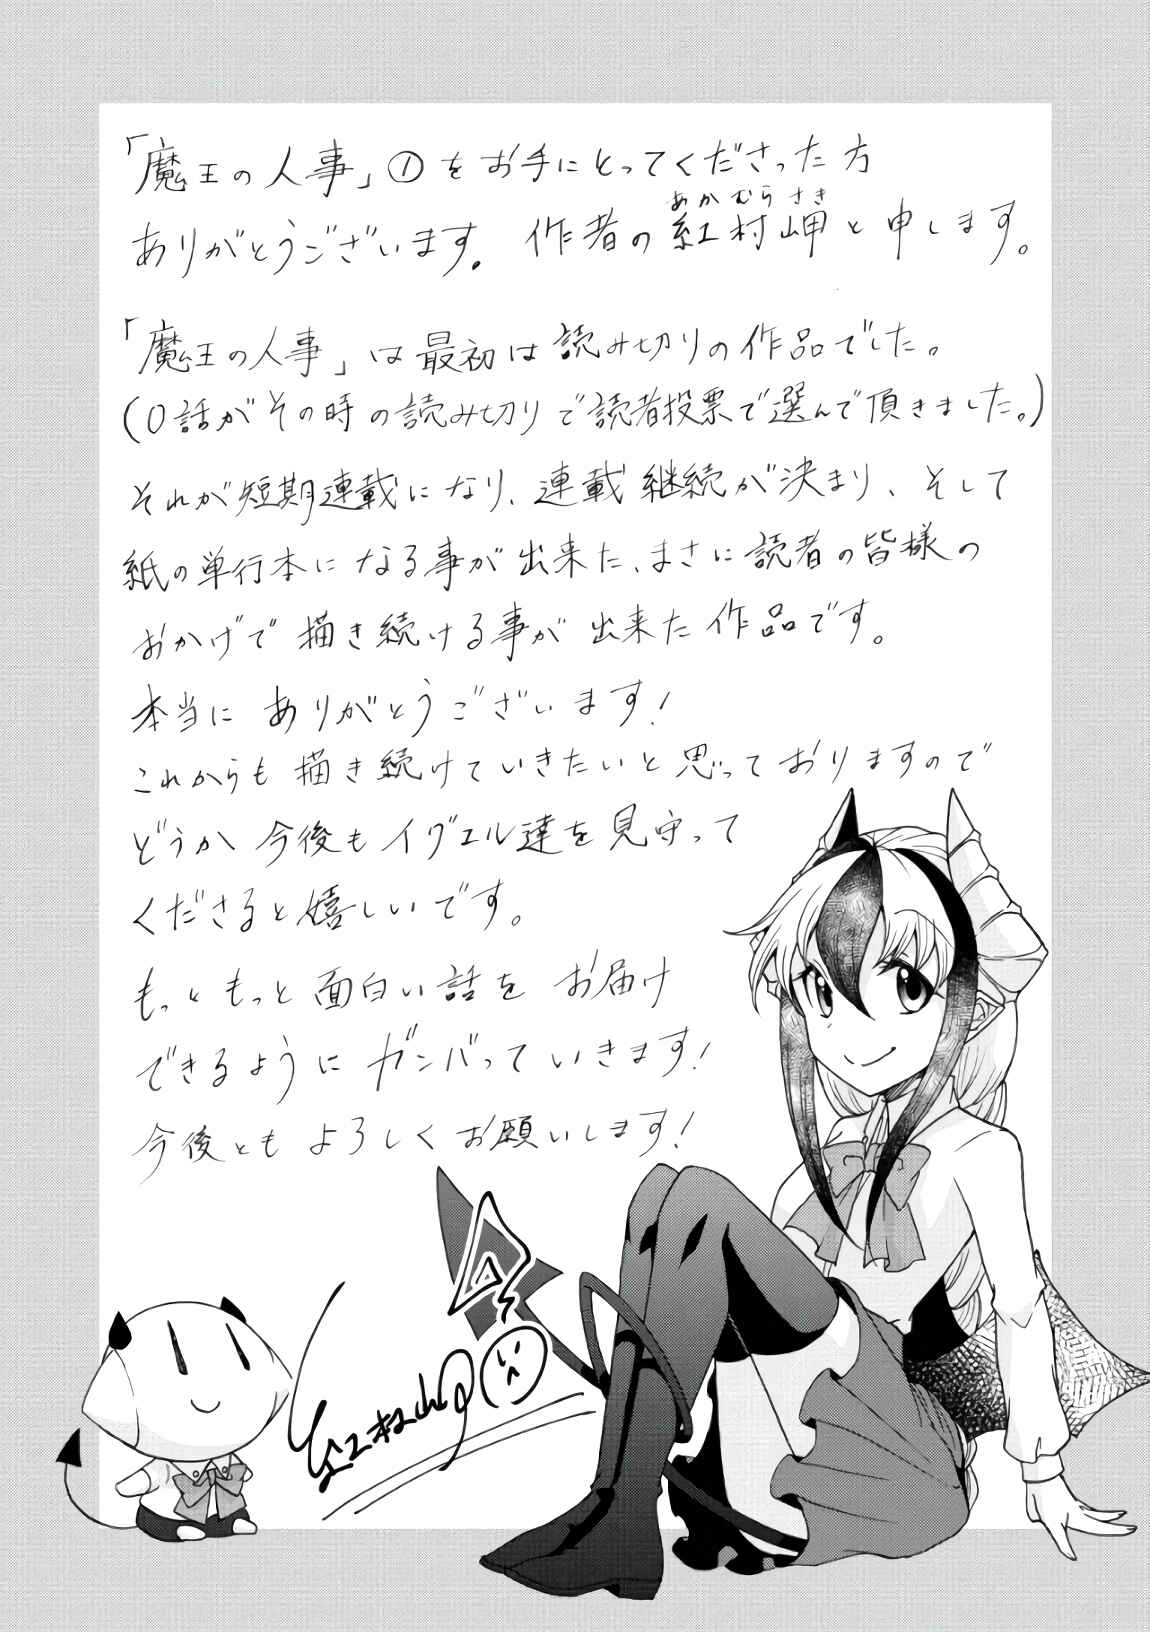 「魔王の人事」①をお手にとってくださった方
ありがとうございます。作者の紅村岬と申します。
あかむらさき
「魔王の人事」は最初は読み切りの作品でした。
(0話がその時の読み切りで読者投票で選んで頂きました。)
それが短期連載になり、連載継続が決まり、そして
紙の単行本になる事が出来た、まさに読者の皆様の
おかげで描き続ける事が出来た作品です。
本当にありがとうございます!
これからも描き続けていきたいと思っておりますので
どうか今後もイグエル達を見守って
くださると嬉しいです。
もっともっと面白い話をお届け
できるようにガンバっていきます!
今後ともよろしくお願いします!
紅村岬